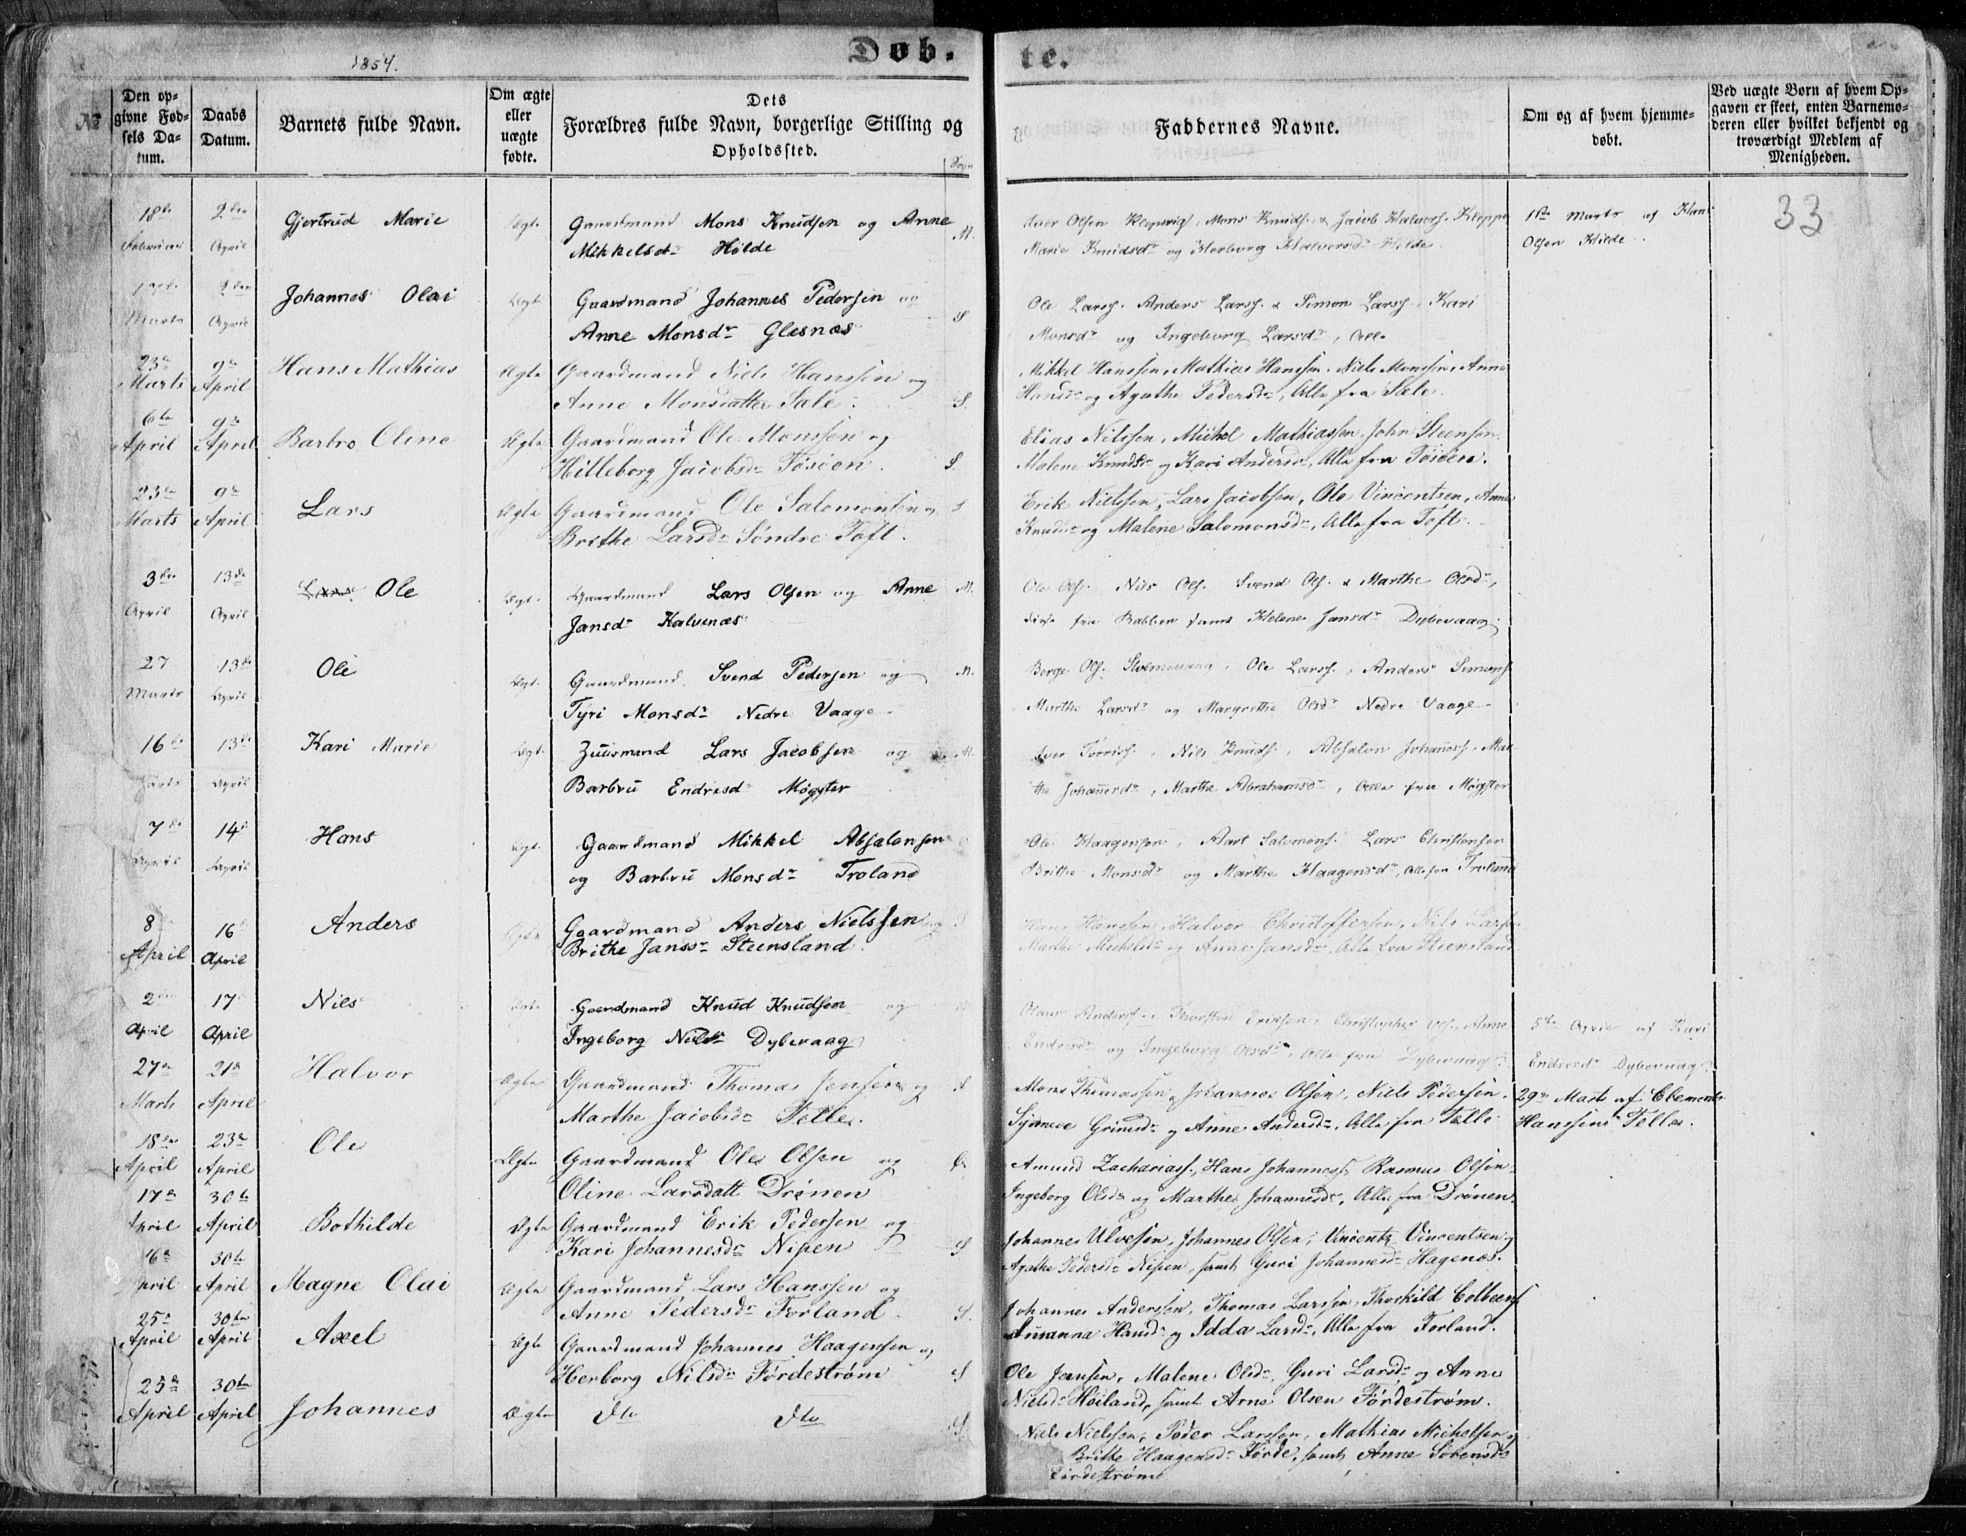 1854.
Døb-
te.
33
№
Den op-
givne Fød-
sels Da-
tum.
Daabs
Datum.
Barnets fulde Navn.
Om ægte
eller
uægte
fødte.
Dets
Forældres fulde Navn, borgerlige Stilling og
Opholdssted.
Sogn
Faddernes Navne.
Om og af hvem hjemme-
døbt.
Ved uægte Børn af hvem Op-
gaven er skeet, enten Barnemo-
deren eller hvilket bekjendt og
troværdigt Medlem af
Menigheden.
18de 2den Gjertrud Marie Ægte Gaardmand Mons Knudsen og Anne M.
Februar April Mikkelsdr Hilde
Iver Olsen Mons Knuds. & Jacob Halvors. Kleppe
Marie Knudsdr og Herborg Halvorsdr Hilde
1ste Marts af Hans
Olsen Hilde
2den Johannes Olai Ægte Gaardmand Johannes Pedersen og
Marts April Anne Monsdr Glesnæs S
Ole Larss. Anders Larss. & Simon Larss. Kari
Monsdr og Ingeborg Larsdr, Alle
23de 9de Hans Mathias Ægte Gaardmand Niels Hanssen og
Marts April Anne Monsdatter Sale. S.
Mikkel Hanssen, Mathias Hanssen, Niels Monssen, Anne
Hansdr og Agathe Pedersdr, Alle fra Sele.
6te 9de
April April Barbro Oline Ægte Gaardmand Ole Monssen og
Hilleborg Jacobsdr Tøsøen. S.
Elias Nilssen, Mickel Mathiassen, John Steensen
Malene Knudsdr og Kari Andersdr, Alle fra Tøsøen.
23de 9de Lars Ægte Gaardmand Ole Salomonsen og S
Marts April Brithe Larsdr Søndre Toft.
Erik Nielssen, Lars Jacobsen, Ole Vincentsen, Anne
Knudsdr og Malene Salomonsdr, Alle fra Toft.
3die 13de Ole Ægte Gaardmand Lars Olsen og Anne M.
April April Jansdr Kalvenæs
Ole Ols. Nils Ols. Svend Ols. & Marthe Olsdr,
disse fra samt Helene Jansdr Dybevaag
27 13de Ole Ægte Gaardmand Svend Pedersen og M.
Marts April Tyri Monsdr Nedre Vaage
Børge Ols. Ole Larss., Anders Simons.
Marthe Larsdr og Margrethe Olsdr Nedre Vaage
16de 13de Kari Marie Ægte Huusmand Lars Jacobsen og M.
Marts April Barbru Endresdr Møgster
Iver Nils Knuds., Absalon Johaness. Mar-
the Johanesdr, Marthe Abrahamsdr, Alle fra Møgster
7de 14de Hans Ægte Gaardmand Mikkel Absalonsen
April April og Barbru Monsdr Troland
Ole Haagensen, Aart Salomons. Lars Christensen
Brithe Monsdr og Marthe Haagensdr, Alle fra Troland
8 16 Anders Ægte Gaardmand Anders Nielssen og S
April April Brithe Jansdr Steensland
Hans Hanssen, Halvor Christoffersen, Nils Larsen
Marthe Michelsdr og Anne Jansdr, Alle fra Steensland
2den 17 Nils Ægte Gaardmand Knud Knudsen og M
April April Ingeborg Nilsdr Dybevaag
Olaus Anders., Thorsten Eriksen, Christopher Ols. Anne
Endresdr og Ingeborg Olsdr, Alle fra Dybevaag
5te April af Kari
Endresdr Dybevaag
27de 21de Halvor Ægte Gaardmand Thomas Jensen og S
Marts April Marthe Jacobsdr Telle.
Mons Thomassen, Johannes Olsen, Niels Pedersen,
Synneve Grimsdr og Anne Andersdr, Alle fra Telle
29de Marts af Clement
Hanssen Telle.
18de 23de Ole
April April Ægte Gaardmand Ole Olsen og
Oline Larsdatt Drønen
Amund Zachariass., Hans Johanness, Rasmus Olsen
Ingeborg Olsdr og Marthe Johannesdr, Alle fra Drønen
17de 30te
April April Bothilde Ægte Gaardmand Erik Pedersen og
Kari Johannesdr Nipen S
Johannes Ulvesen, Johannes Olsen, Vincents Vincentsen
Agathe Pedersdr Nipen, samt Guri Johannesdr Hagenæs.
6te 30te
April April Magne Olai Ægte Gaardmand Lars Hanssen og
Anne Pedersdr Forland. S.
Johannes Anderssen, Thomas Larssen, Thorskild Colbeens
Susanna Hansdr og Idda Larsdr, Alle fra Forland.
25de 30te
April April Axel Ægte Gaardmand Johannes Haagensen og
Herborg Nilsdr Førdestrøm S
Ole Jensen, Malene Olsdr, Guri Larsdr og Anne
Nielsdr Høiland, samt Arne Olsen Førdestrøm.
25de 30te
April April Johannes Ægte Dto Dto S.
Niels Nielssen, Peder Larssen, Mathias Michelsen og
Brithe Haagensdr Førde, samt Anne Sørensdr
Førdestrøm